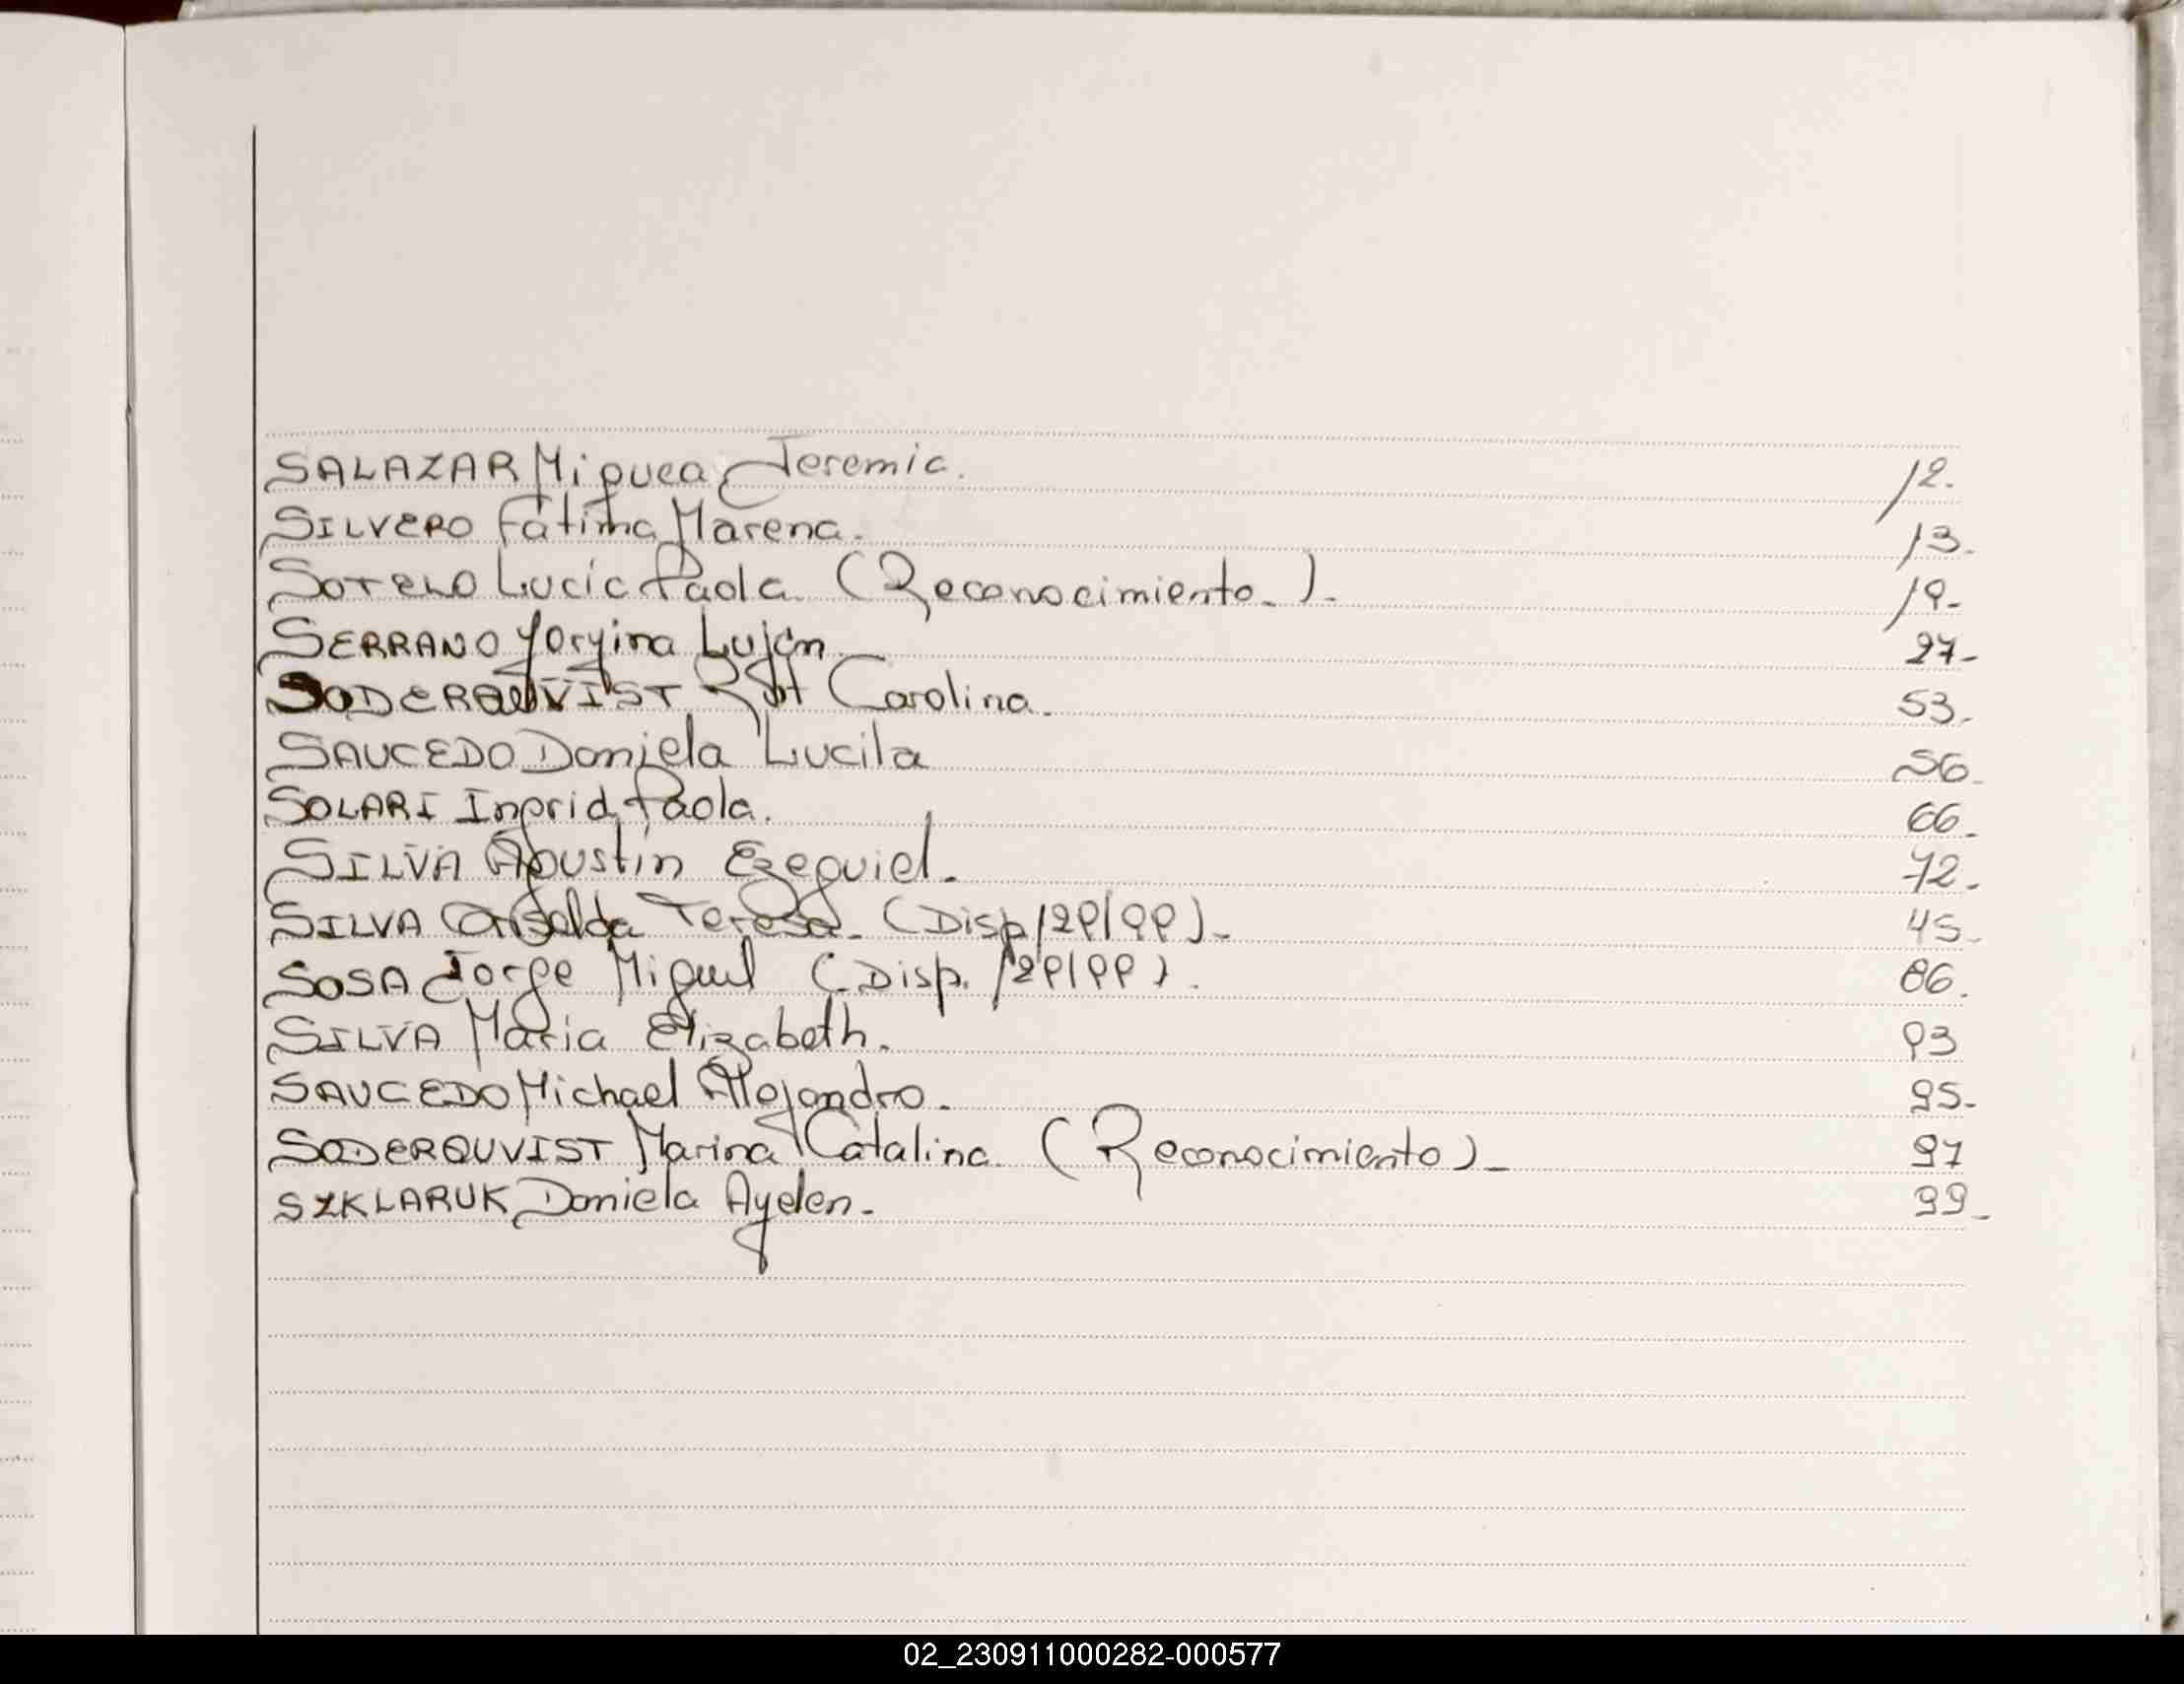 SALAZAR Miguea Jeremia. 12.
SILVERO Fátima Marena. 13.
SOTELO Lucia Paola. (Reconocimiento.). 19-
SERRANO Yoryina Luján. 27-
SODERQUVIST Rut Carolina. 53.
SAUCEDO Daniela Lucila 56.
SOLARI Ingrid Paola. 66.
SILVA Agustín Ezequiel. 72.
SILVA Griselda Teresa. (Disp/29/99)- 45-
SOSA Jorge Miguel (Disp. /29/99). 86.
SILVA Maria Elizabeth. 93
SAUCEDO Michael Alejandro. 95.
SODERQUVIST Marina Catalina. (Reconocimiento)- 97
SZKLARUK Daniela Ayelen. 99-
02_230911000282-000577